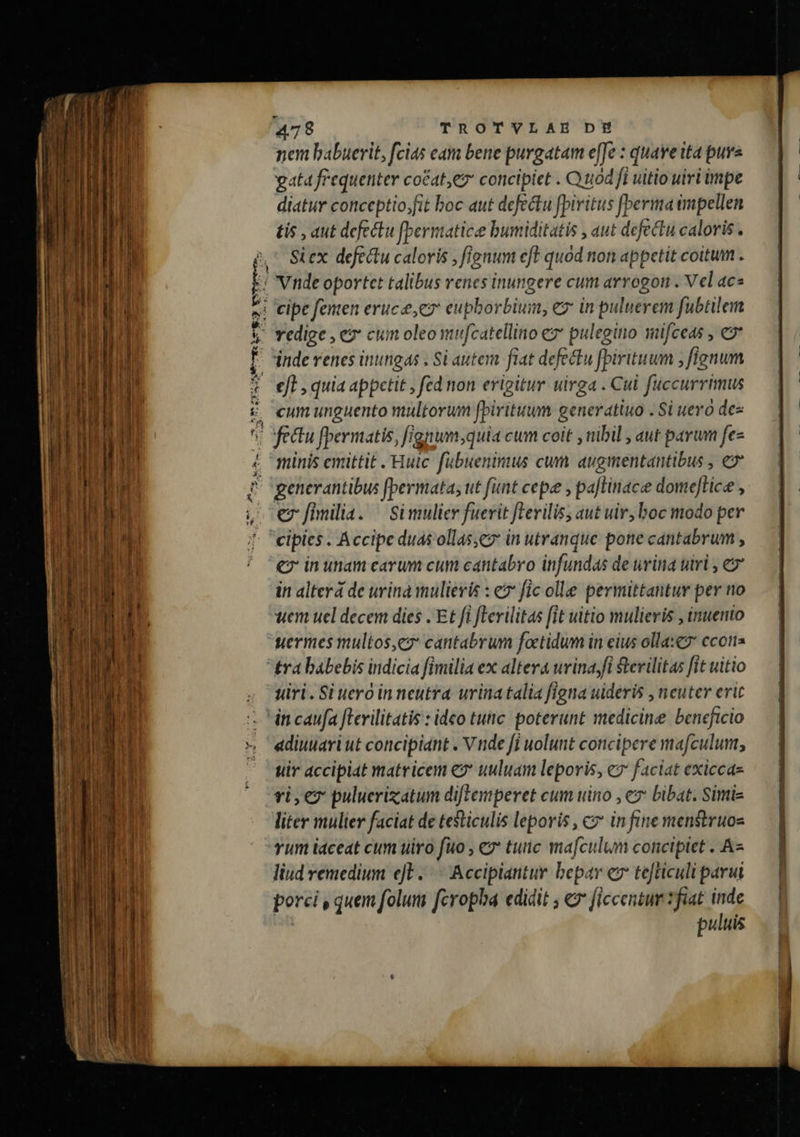 478 TROTVLAE DE
nem habuerit, ſcias eam bene purgatam eſſe : quare ita pur=
gata frequenter coëat,&amp; concipiet . Quòd ſi uitio uiri impe
diatur conceptio,ſit hoc aut defectu ſpiritus ſperma impellen
tis , aut defectu ſpermaticæ humiditatis , aut defectu caloris .
Si ex defectu caloris , ſignum eſt quòd non appetit coitum .
Vnde oportet talibus renes inungere cum arrogon . Vel ac=
cipe ſemen erucæ,&amp; euphorbium, &amp; in puluerem ſubtilem
redige , &amp; cum oleo muſcatellino &amp; pulegino miſceas , &amp;
inde renes inungas . Si autem fiat defectu ſpirituum , ſignum
eſt , quia appetit , ſed non erigitur uirga . Cui ſuccurrimus
cum unguento multorum ſpirituum generatiuo . Si uerò de=
fectu ſpermatis, ſignum,quia cum coit , nihil , aut parum ſe=
minis emittit . Huic ſubuenimus cum augmentantibus , &amp;
generantibus ſpermata, ut ſunt cepæ , paſtinacæ domeſticæ ,
&amp; ſimilia. Si mulier fuerit ſterilis, aut uir, hoc modo per
cipies . Accipe duas ollas,&amp; in utranque pone cantabrum ,
&amp; in unam earum cum cantabro infundas de urina uiri , &amp;
in alterâ de urinâ mulieris : &amp; ſic ollæ permittantur per no
uem uel decem dies . Et ſi ſterilitas ſit uitio mulieris , inuenio
uermes multos,&amp; cantabrum fœtidum in eius olla:&amp; econ=
tra habebis indicia ſimilia ex altera urina,ſi sterilitas ſit uitio
uiri . Si uerò in neutra urina talia ſigna uideris , neuter erit
in cauſa ſterilitatis : ideo tunc poterunt medicinæ beneficio
adiuuari ut concipiant . Vnde ſi uolunt concipere maſculum,
uir accipiat matricem &amp; uuluam leporis, &amp; faciat exicca=
ri , &amp; puluerizatum diſtemperet cum uino , &amp; bibat. Simi=
liter mulier faciat de testiculis leporis , &amp; in fine menstruo=
rum iaceat cum uiro ſuo , &amp; tunc maſculum concipiet . A=
liud remedium eſt . Accipiantur hepar &amp; teſticuli parui
porci , quem ſolum ſcropha edidit , &amp; ſiccentur : fiat inde
puluis